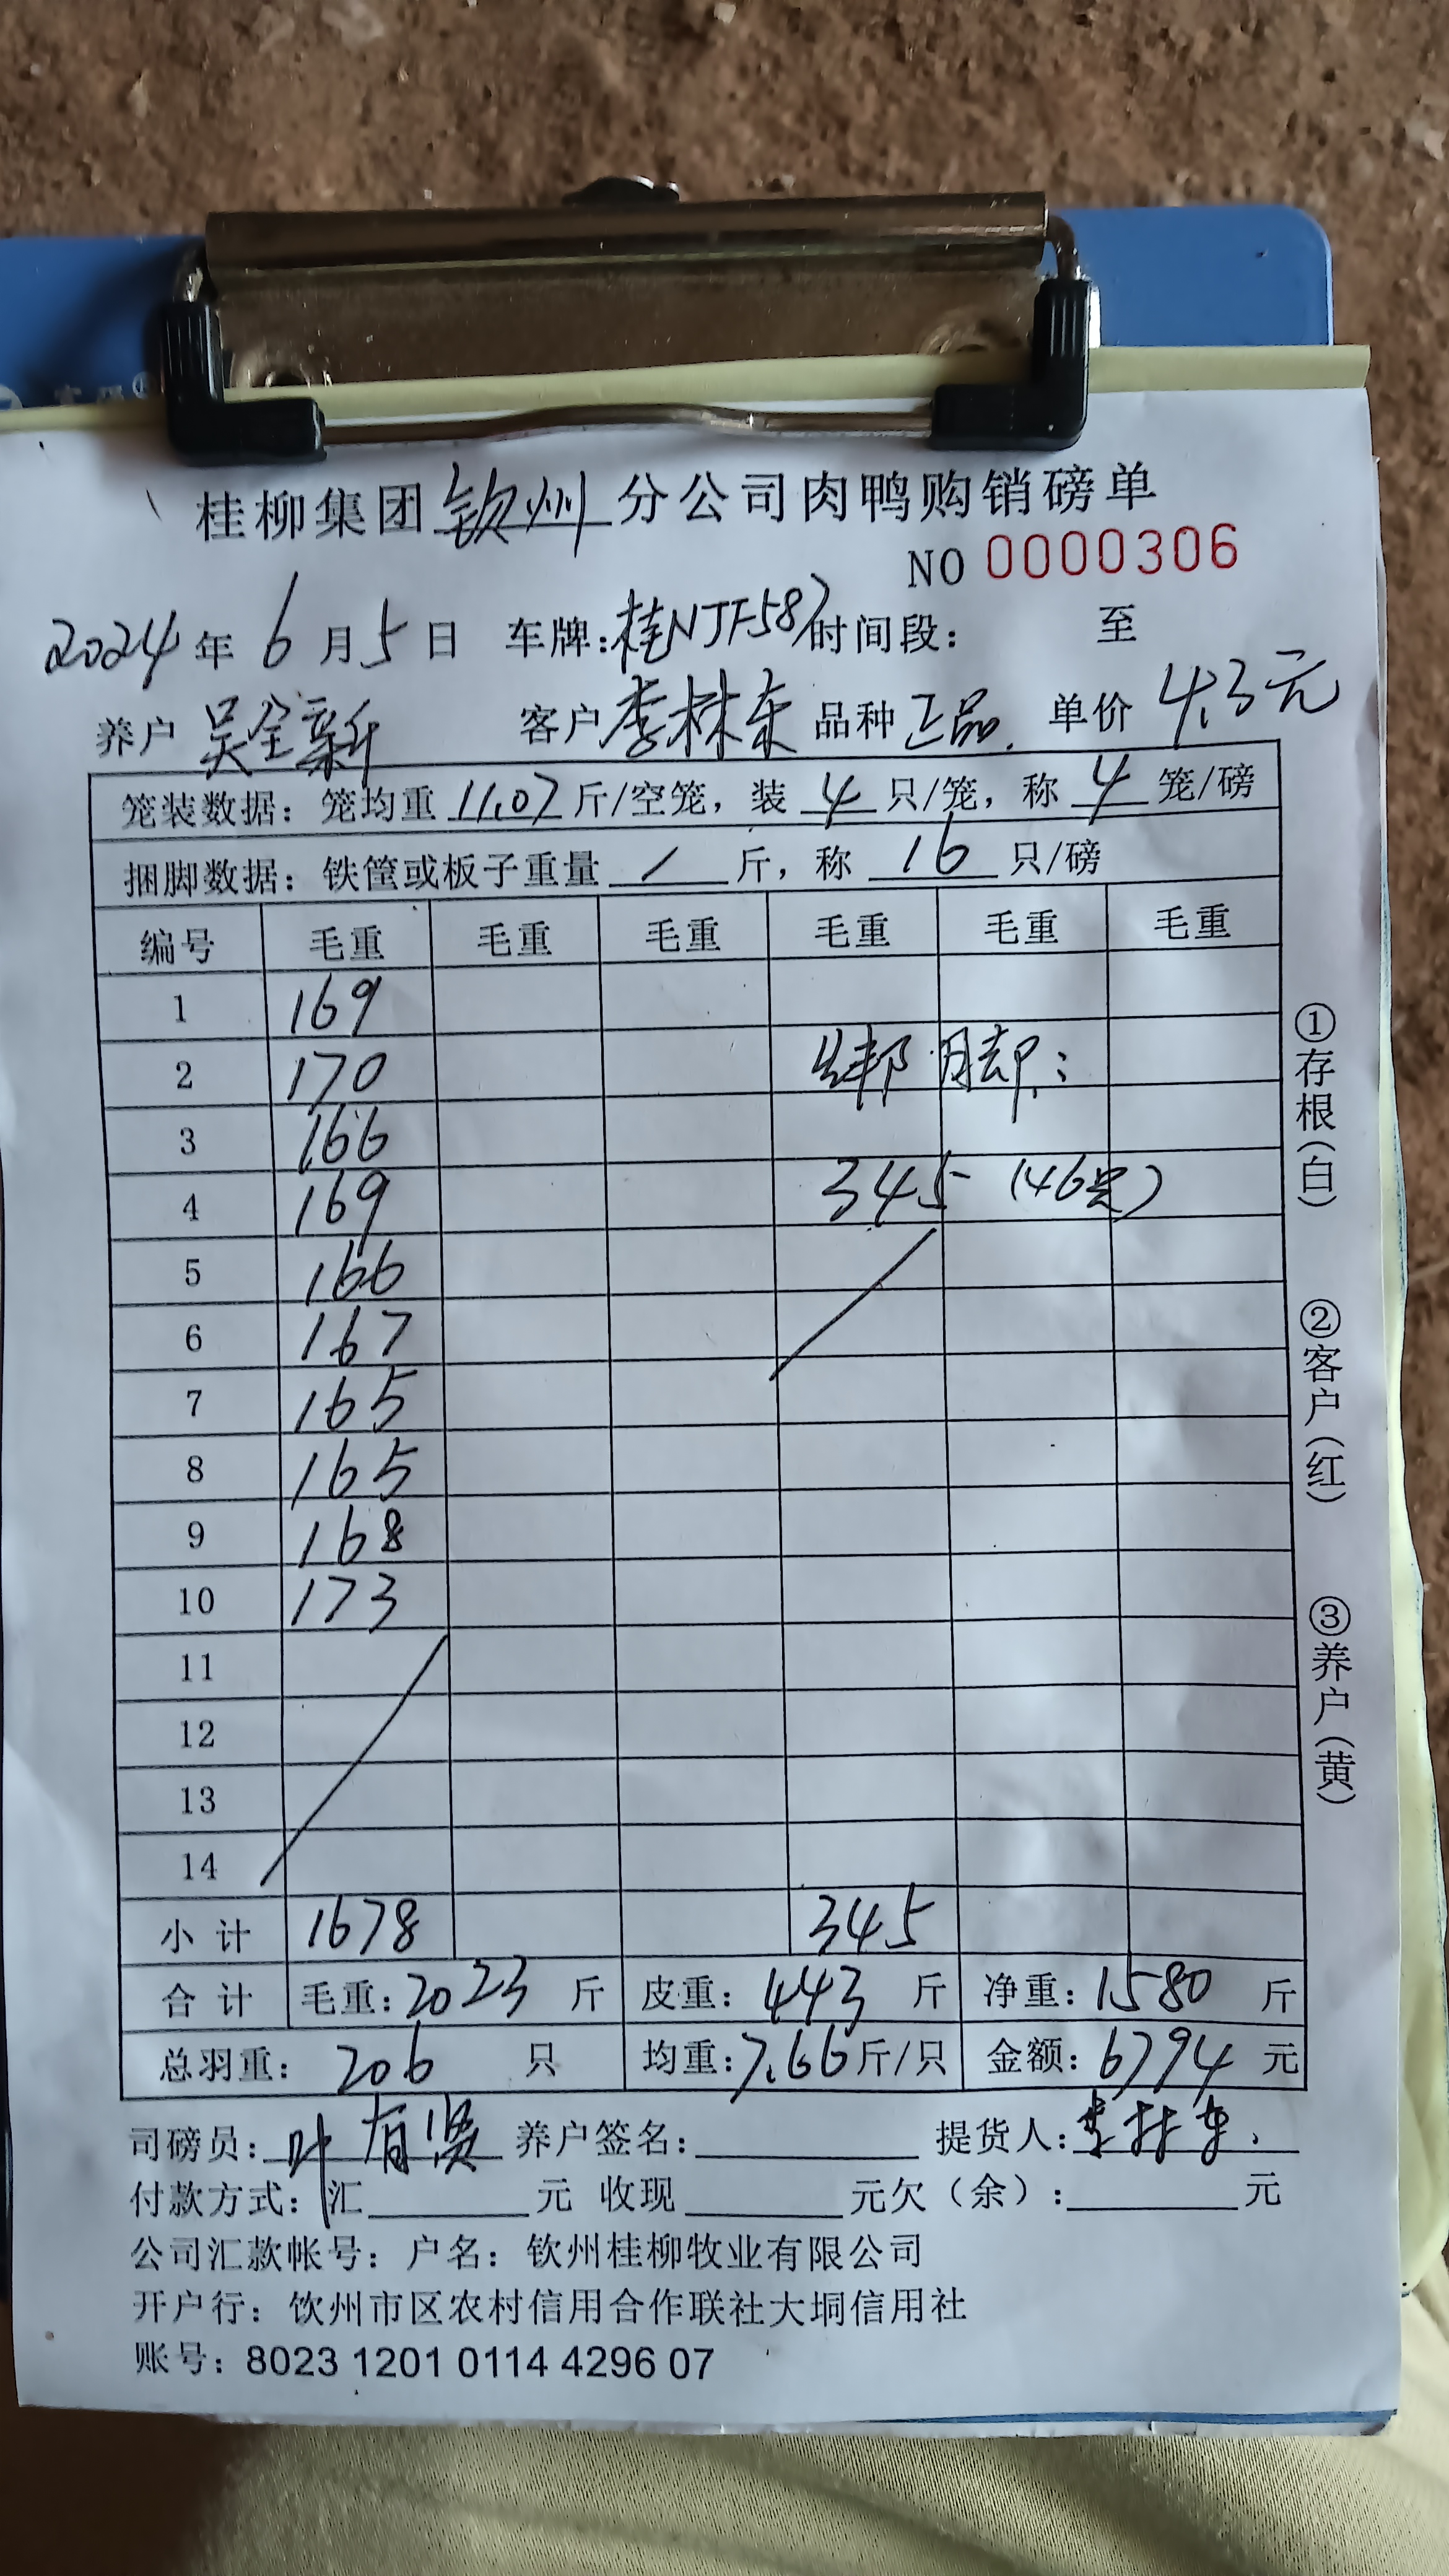 桂柳集团钦州分公司肉鸭购销磅单
NO 0000306
2024年6月5日 车牌:桂NJF587时间段: 至
养户 吴全新 客户李林东 品种 正品. 单价 4.3元
笼装数据: 笼均重 11.07 斤/空笼, 装 4 只/笼, 称 4 笼/磅
捆脚数据: 铁筐或板子重量 / 斤, 称 16 只/磅
编号 毛重 毛重 毛重 毛重 毛重 毛重
1 169
2 170 绑脚:
3 166
4 169 345 (46只)
5 166
6 167
7 165
8 165
9 168
10 173
11
12
13
14
小计 1678 345
合计 毛重:2023 斤 皮重: 443 斤 净重:1580 斤
总羽重: 206 只 均重:7.66斤/只 金额: 6794 元
司磅员: 叶有贤 养户签名: 提货人:李林东
付款方式: 汇 元 收现 元欠(余): 元
公司汇款帐号: 户名: 钦州桂柳牧业有限公司
开户行: 饮州市区农村信用合作联社大垌信用社
账号: 8023 1201 0114 4296 07
①存根(白)
②客户(红)
③养户(黄)